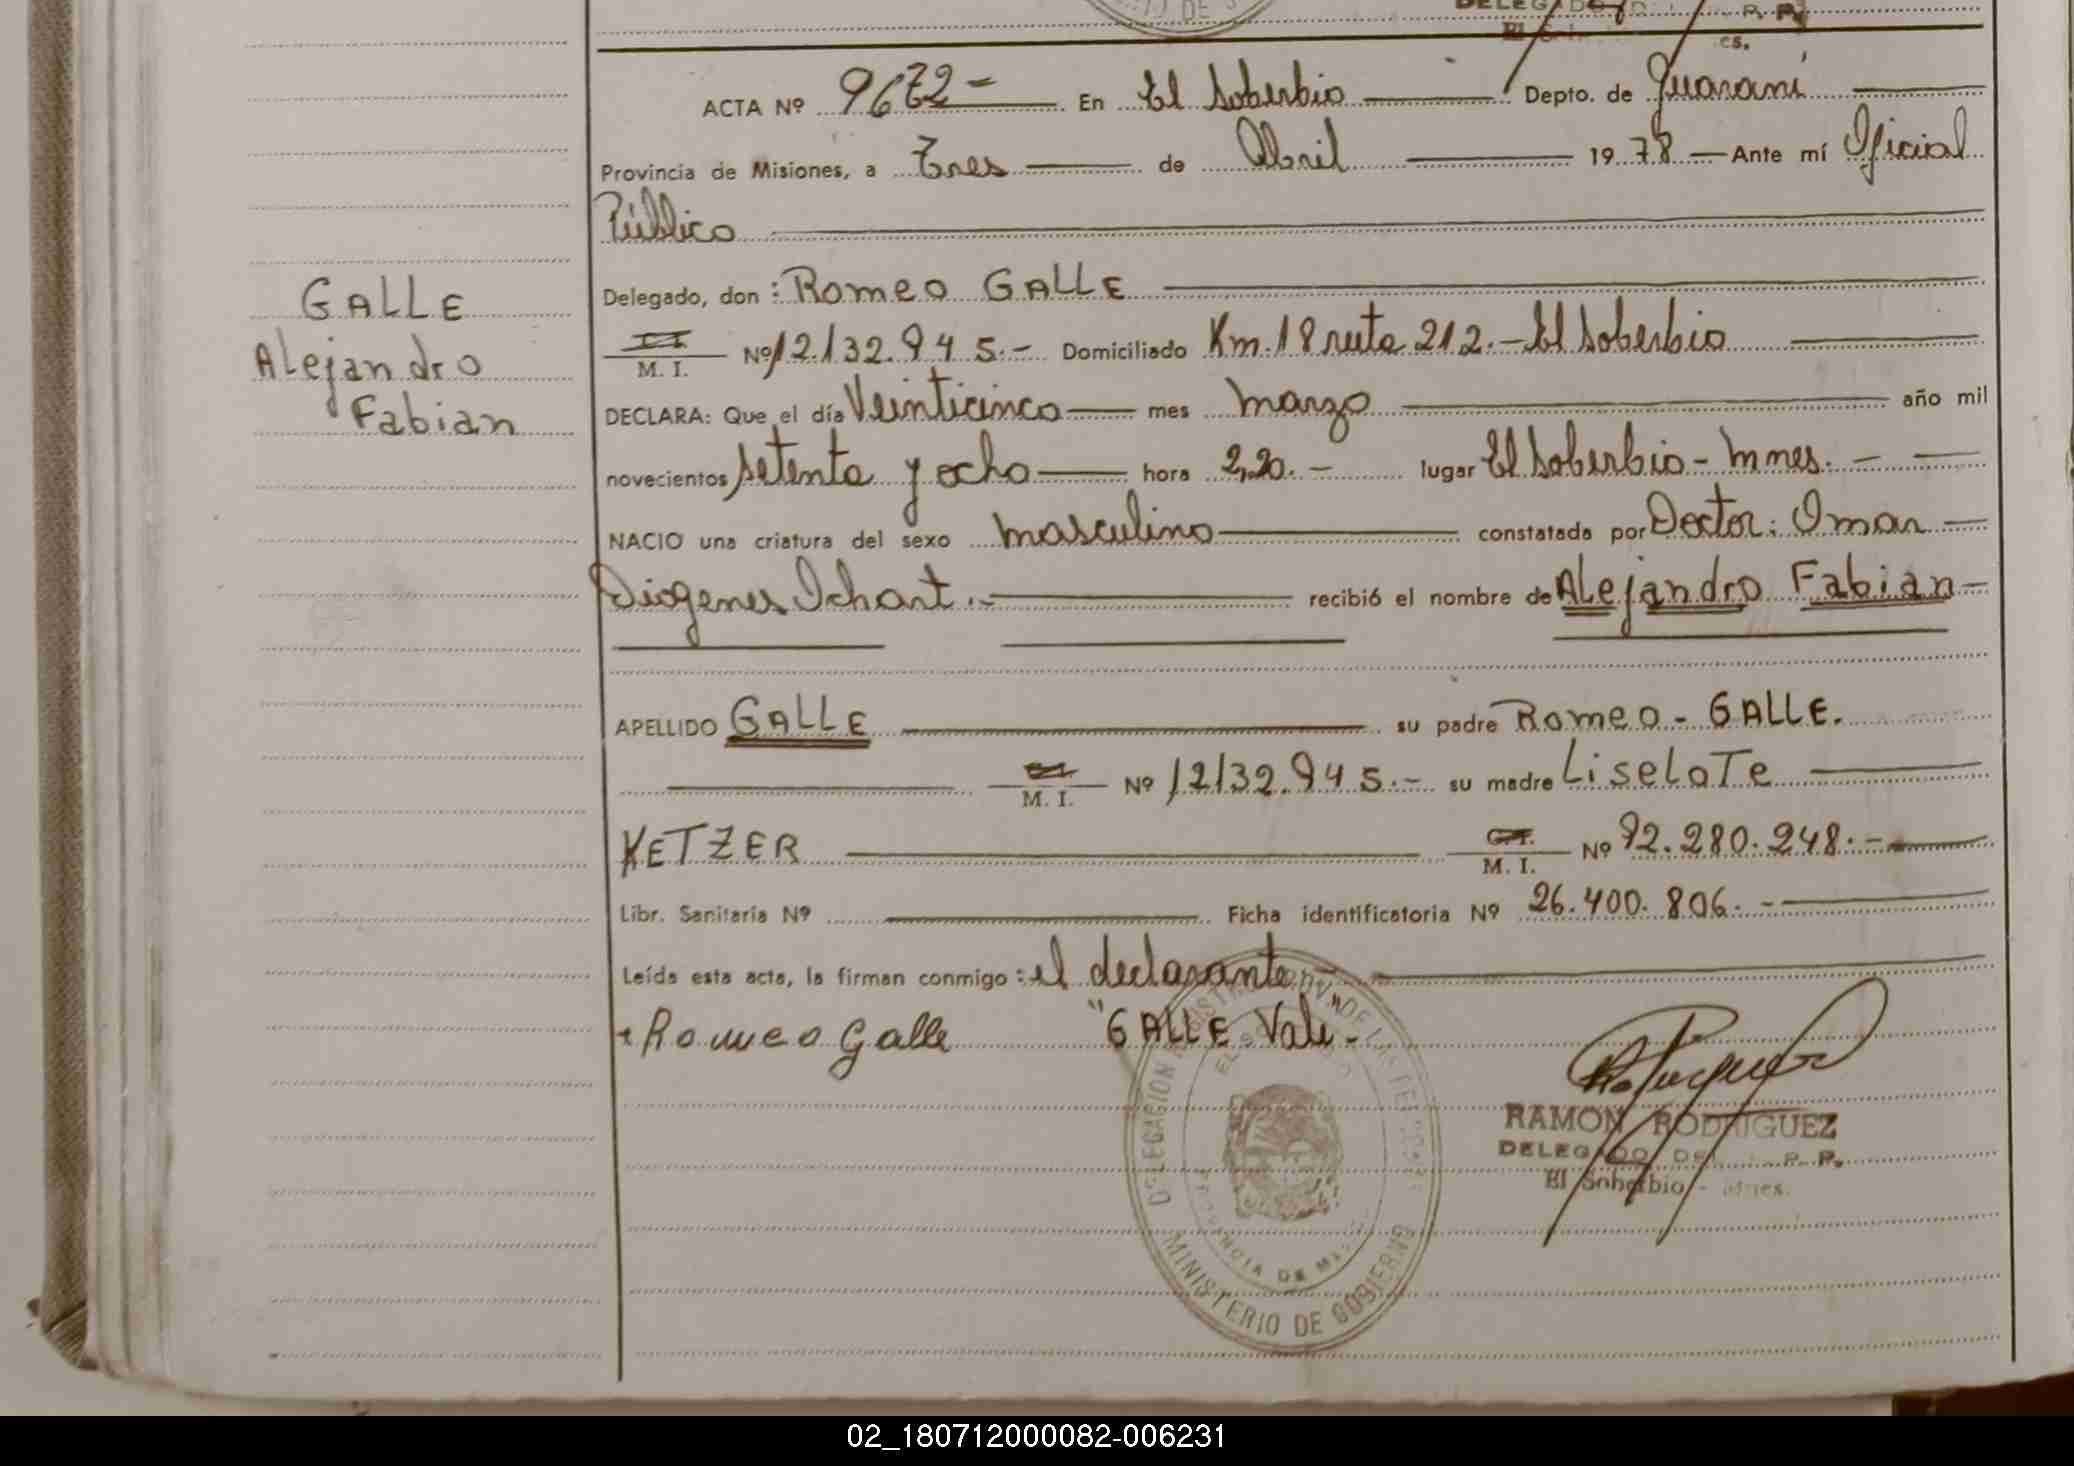 ACTA Nº 9672- En El Soberbio Depto. de Guaraní
Provincia de Misiones, a Tres de Abril 1978 - Ante mí Oficial
Público
GALLE
Alejandro
Fabian
Delegado, don: Romeo GALLE
M. I. Nº 12.132.945.- Domiciliado Km.18 ruta 212.- El Soberbio
DECLARA: Que el día Veinticinco mes marzo año mil
novecientos setenta y ocho hora 2,20.- lugar El Soberbio - Mnes. -
NACIO una criatura del sexo masculino constatada por Doctor: Omar
Diogenes Ichart.- recibió el nombre de Alejandro Fabian
APELLIDO GALLE su padre Romeo - GALLE.
M. I. Nº 12132.945.- su madre LiseloTe
KETZER M. I. Nº 92.280.248.-
Libr. Sanitaria Nº Ficha identificatoria Nº 26.400.806.-
Leída esta acta, la firman conmigo: el declarante
+ Romeo Galle "GALLE" Vale.-
RAMON RODRIGUEZ
DELEGADO DE P. P.
El Soberbio - Mnes.
DELEGACION REGISTRO
MINISTERIO DE GOBIERNO
PROVINCIA DE MISIONES
02_180712000082-006231